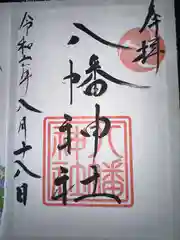 奉拝
八幡神社
令和二年八月十八日
八幡神社